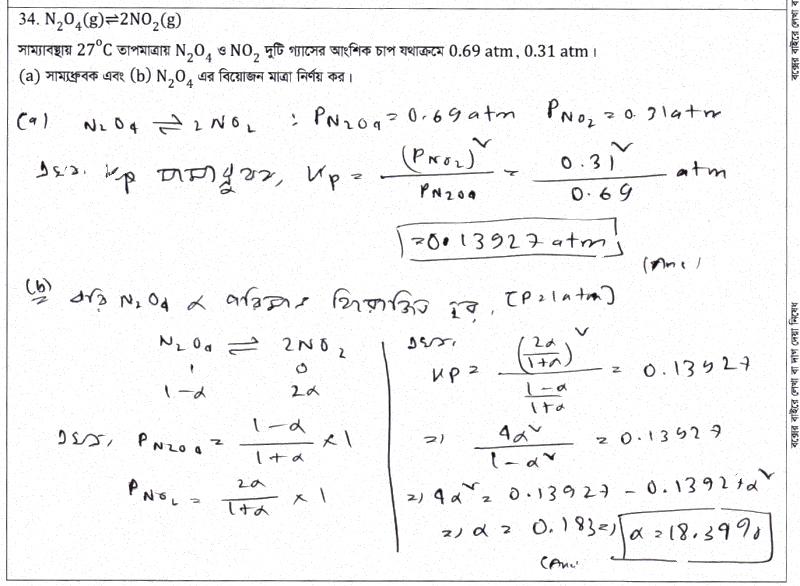 34. N₂O₄(g)⇌2NO₂(g)
সাম্যাবস্থায় 27°C তাপমাত্রায় N₂O₄ ও NO₂ দুটি গ্যাসের আংশিক চাপ যথাক্রমে 0.69 atm, 0.31 atm।
(a) সাম্যধ্রুবক এবং (b) N₂O₄ এর বিয়োজন মাত্রা নির্ণয় কর।
(a) N₂O₄ ⇌ 2NO₂ : P_N₂O₄ = 0.69 atm P_NO₂ = 0.31 atm
Kp সাম্যধ্রুবক, Kp = (P_NO₂)² / P_N₂O₄ = 0.31² / 0.69 atm
= 0.13927 atm
(Ans)
(b) ধরি N₂O₄ α পরিমাণ বিয়োজিত হয়, [P=1atm]
N₂O₄ ⇌ 2NO₂
1 0
1-α 2α
P_N₂O₄ = (1-α)/(1+α) × 1
P_NO₂ = 2α/(1+α) × 1
Kp = (2α/(1+α))² / ((1-α)/(1+α)) = 0.13927
=> 4α² / (1-α²) = 0.13927
=> 4α² = 0.13927 - 0.13927α²
=> α = 0.183 => α = 18.34%
(Ans)
বক্সের বাইরে লেখা বা দাগ দেয়া নিষেধ